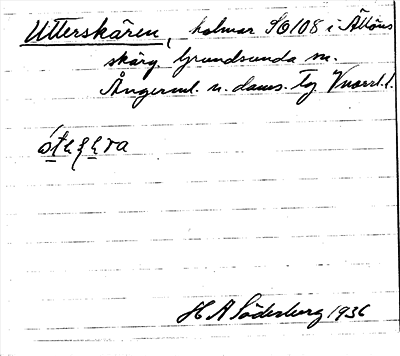 Utterskären, holmar SO 108 i Ältöns
skärg. Grundsunda sn.
Ångerml. n. doms. Tg Vnorrl. l.
H A Söderberg 1936